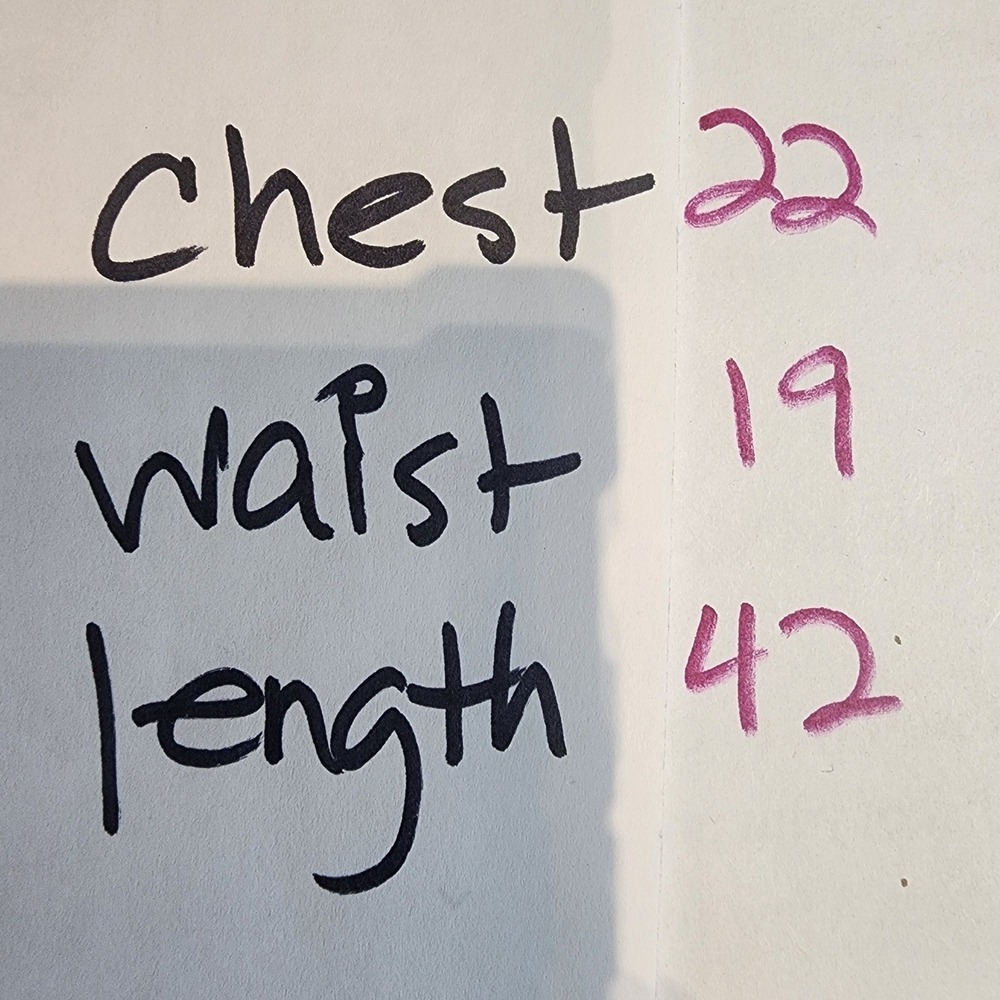 chest 22
waist 19
length 42